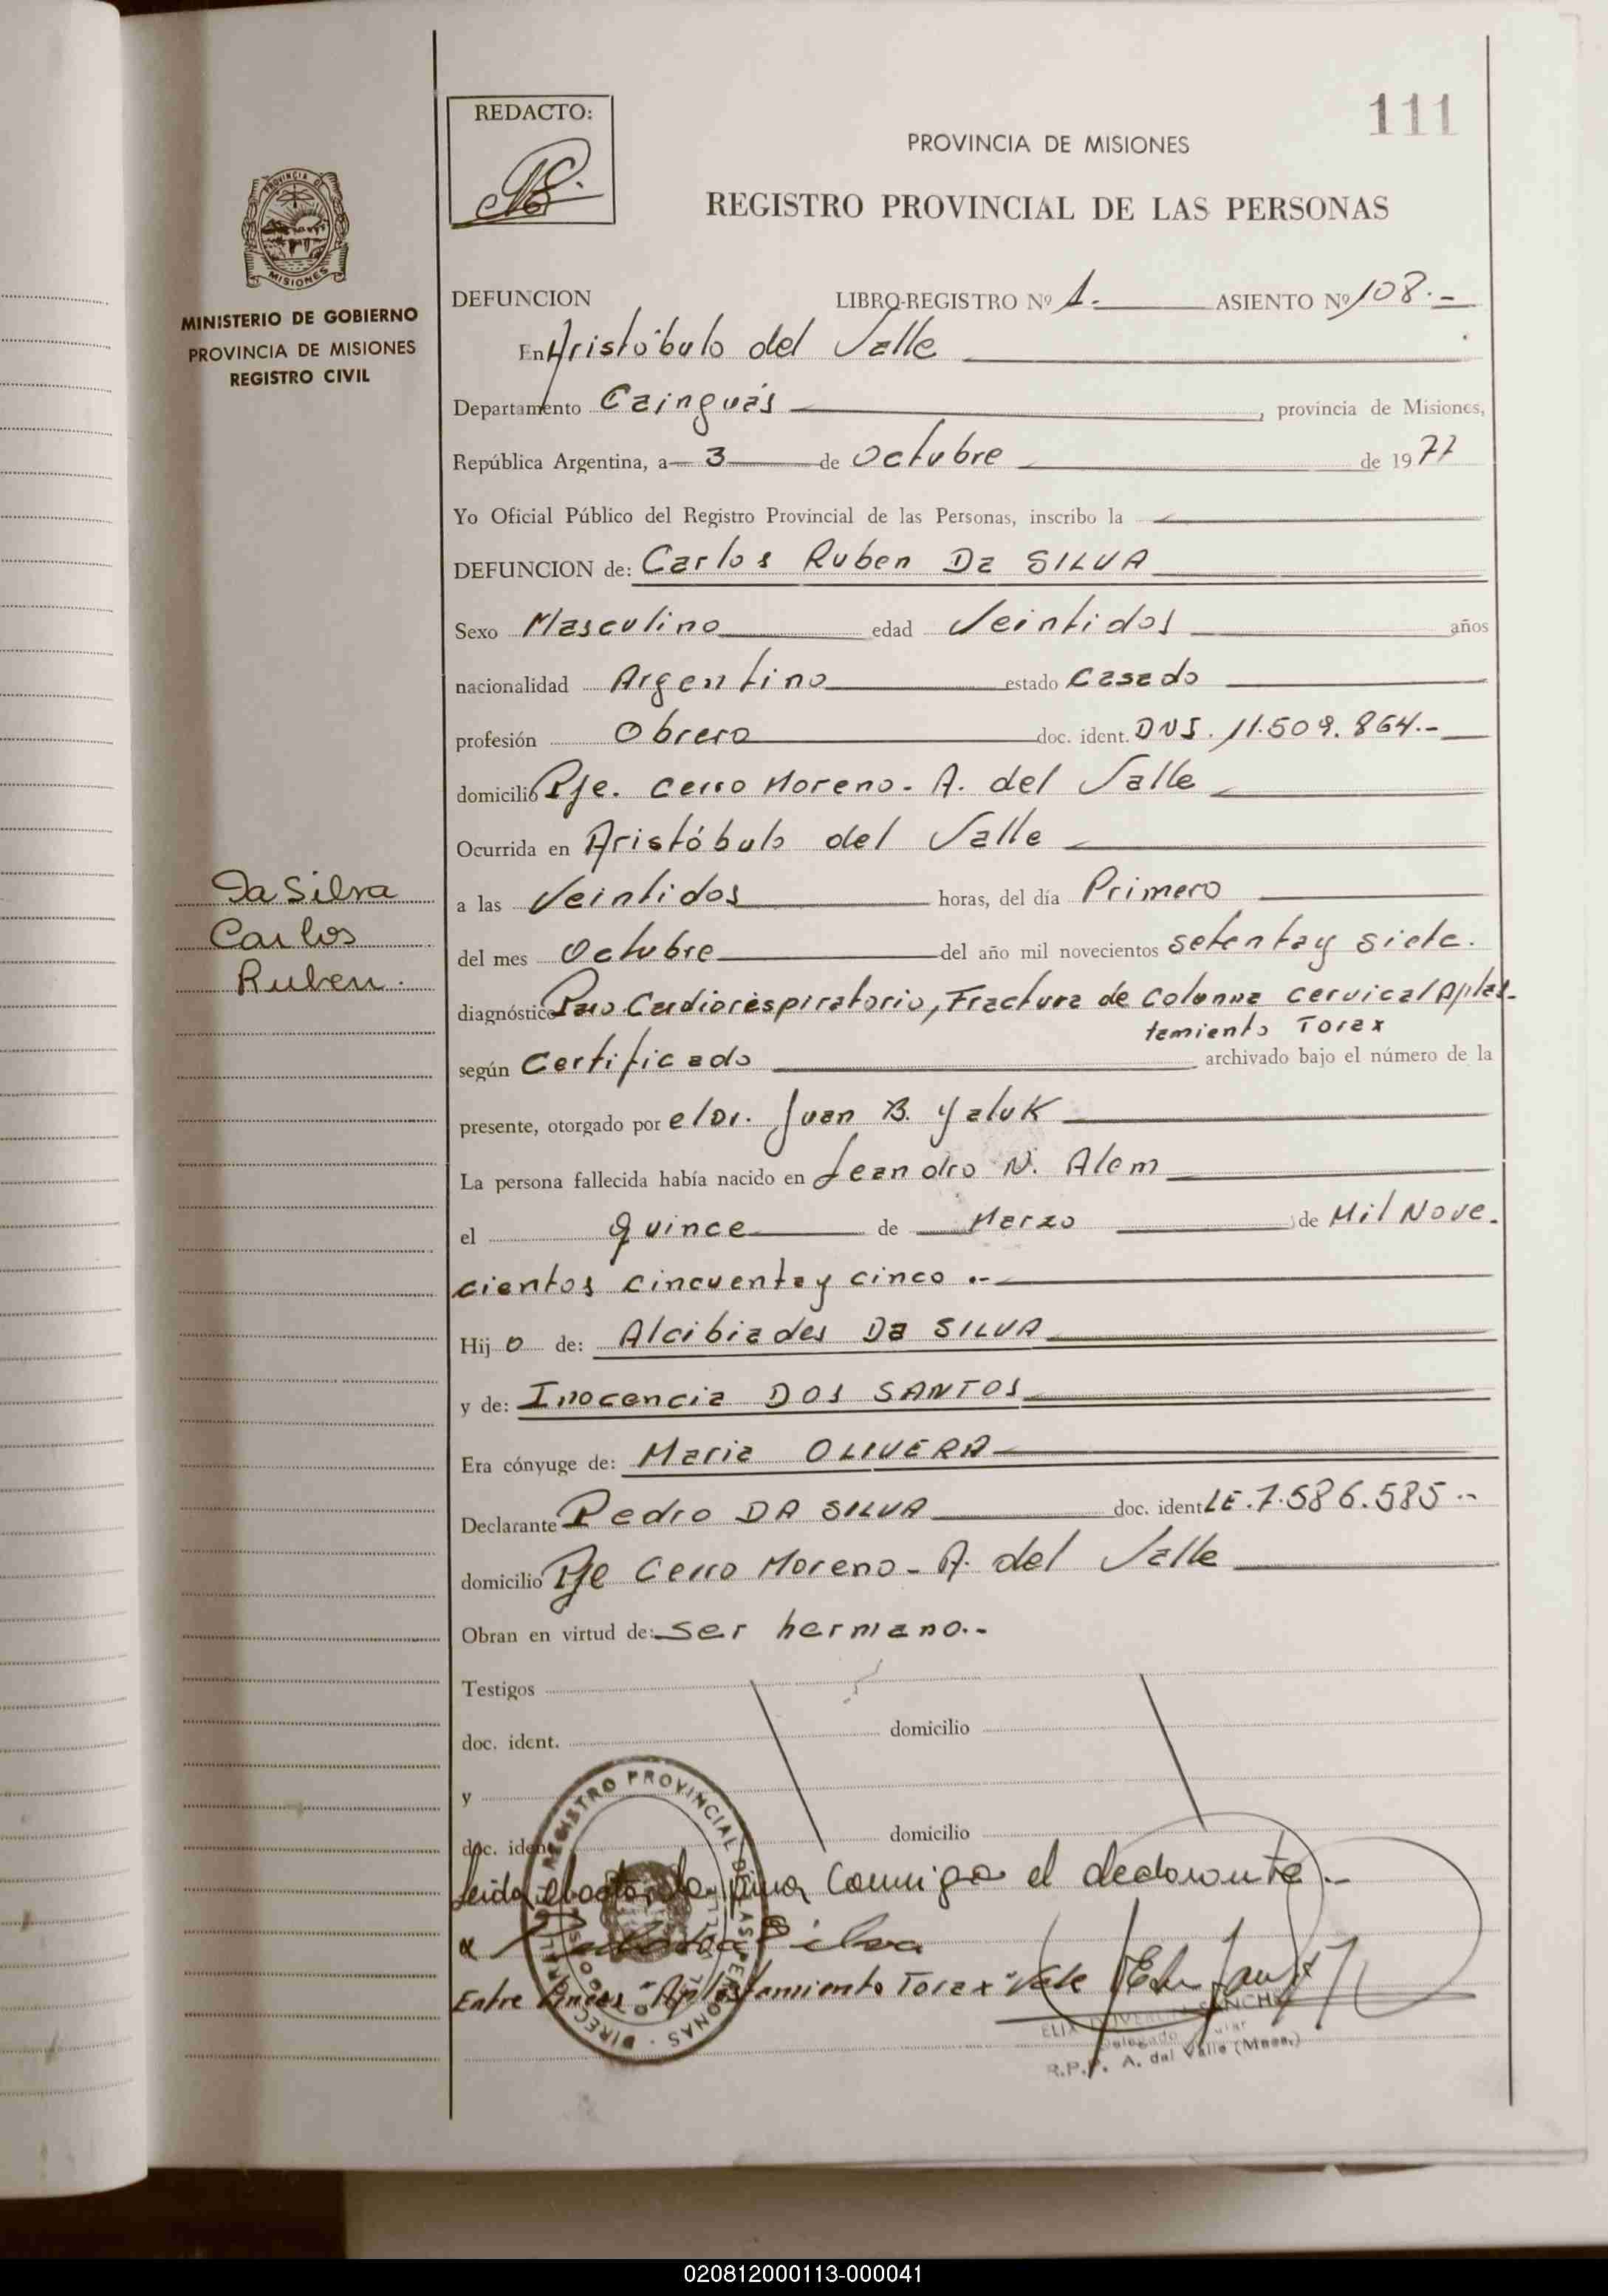 111
REDACTO:
PROVINCIA DE MISIONES
REGISTRO PROVINCIAL DE LAS PERSONAS
PROVINCIA DE
MISIONES
MINISTERIO DE GOBIERNO
PROVINCIA DE MISIONES
REGISTRO CIVIL
DEFUNCION LIBRO-REGISTRO Nº 1.- ASIENTO Nº 108.-
En Aristóbulo del Valle
Departamento Cainguás , provincia de Misiones,
República Argentina, a 3 de Octubre de 1977
Yo Oficial Público del Registro Provincial de las Personas, inscribo la
DEFUNCION de: Carlos Ruben Da SILVA
Sexo Masculino edad Veintidos años
nacionalidad Argentino estado Casado
profesión Obrero doc. ident. DNI. 11.509.864.-
domicilio Pje. Cerro Moreno - A. del Valle
Ocurrida en Aristóbulo del Valle
a las Veintidos horas, del día Primero
del mes Octubre del año mil novecientos setenta y siete.
diagnóstico Paro Cardiorespiratorio, Fractura de Columna Cervical Aplas-
tamiento Torax
según Certificado archivado bajo el número de la
presente, otorgado por el Dr. Juan B. Yaluk
La persona fallecida había nacido en Leandro N. Alem
el quince de Marzo de Mil Nove.
cientos cincuenta y cinco .-
Hijo de: Alcibiades Da SILVA
y de: Inocencia DOS SANTOS
Era cónyuge de: Maria OLIVERA
Declarante Pedro DA SILVA doc. ident LE. 7.586.585.-
domicilio Pje Cerro Moreno - A. del Valle
Obran en virtud de: ser hermano.-
Testigos
doc. ident. domicilio
y
doc. ident. domicilio
Da Silva
Carlos
Ruben.
Leida el acta la firma conmigo el declarante.-
Silva
Entre lineas "Aplastamiento Torax" Vale
REGISTRO PROVINCIAL DE LAS PERSONAS
Delegado
R.P.P. A. del Valle (Mnes.)
020812000113-000041